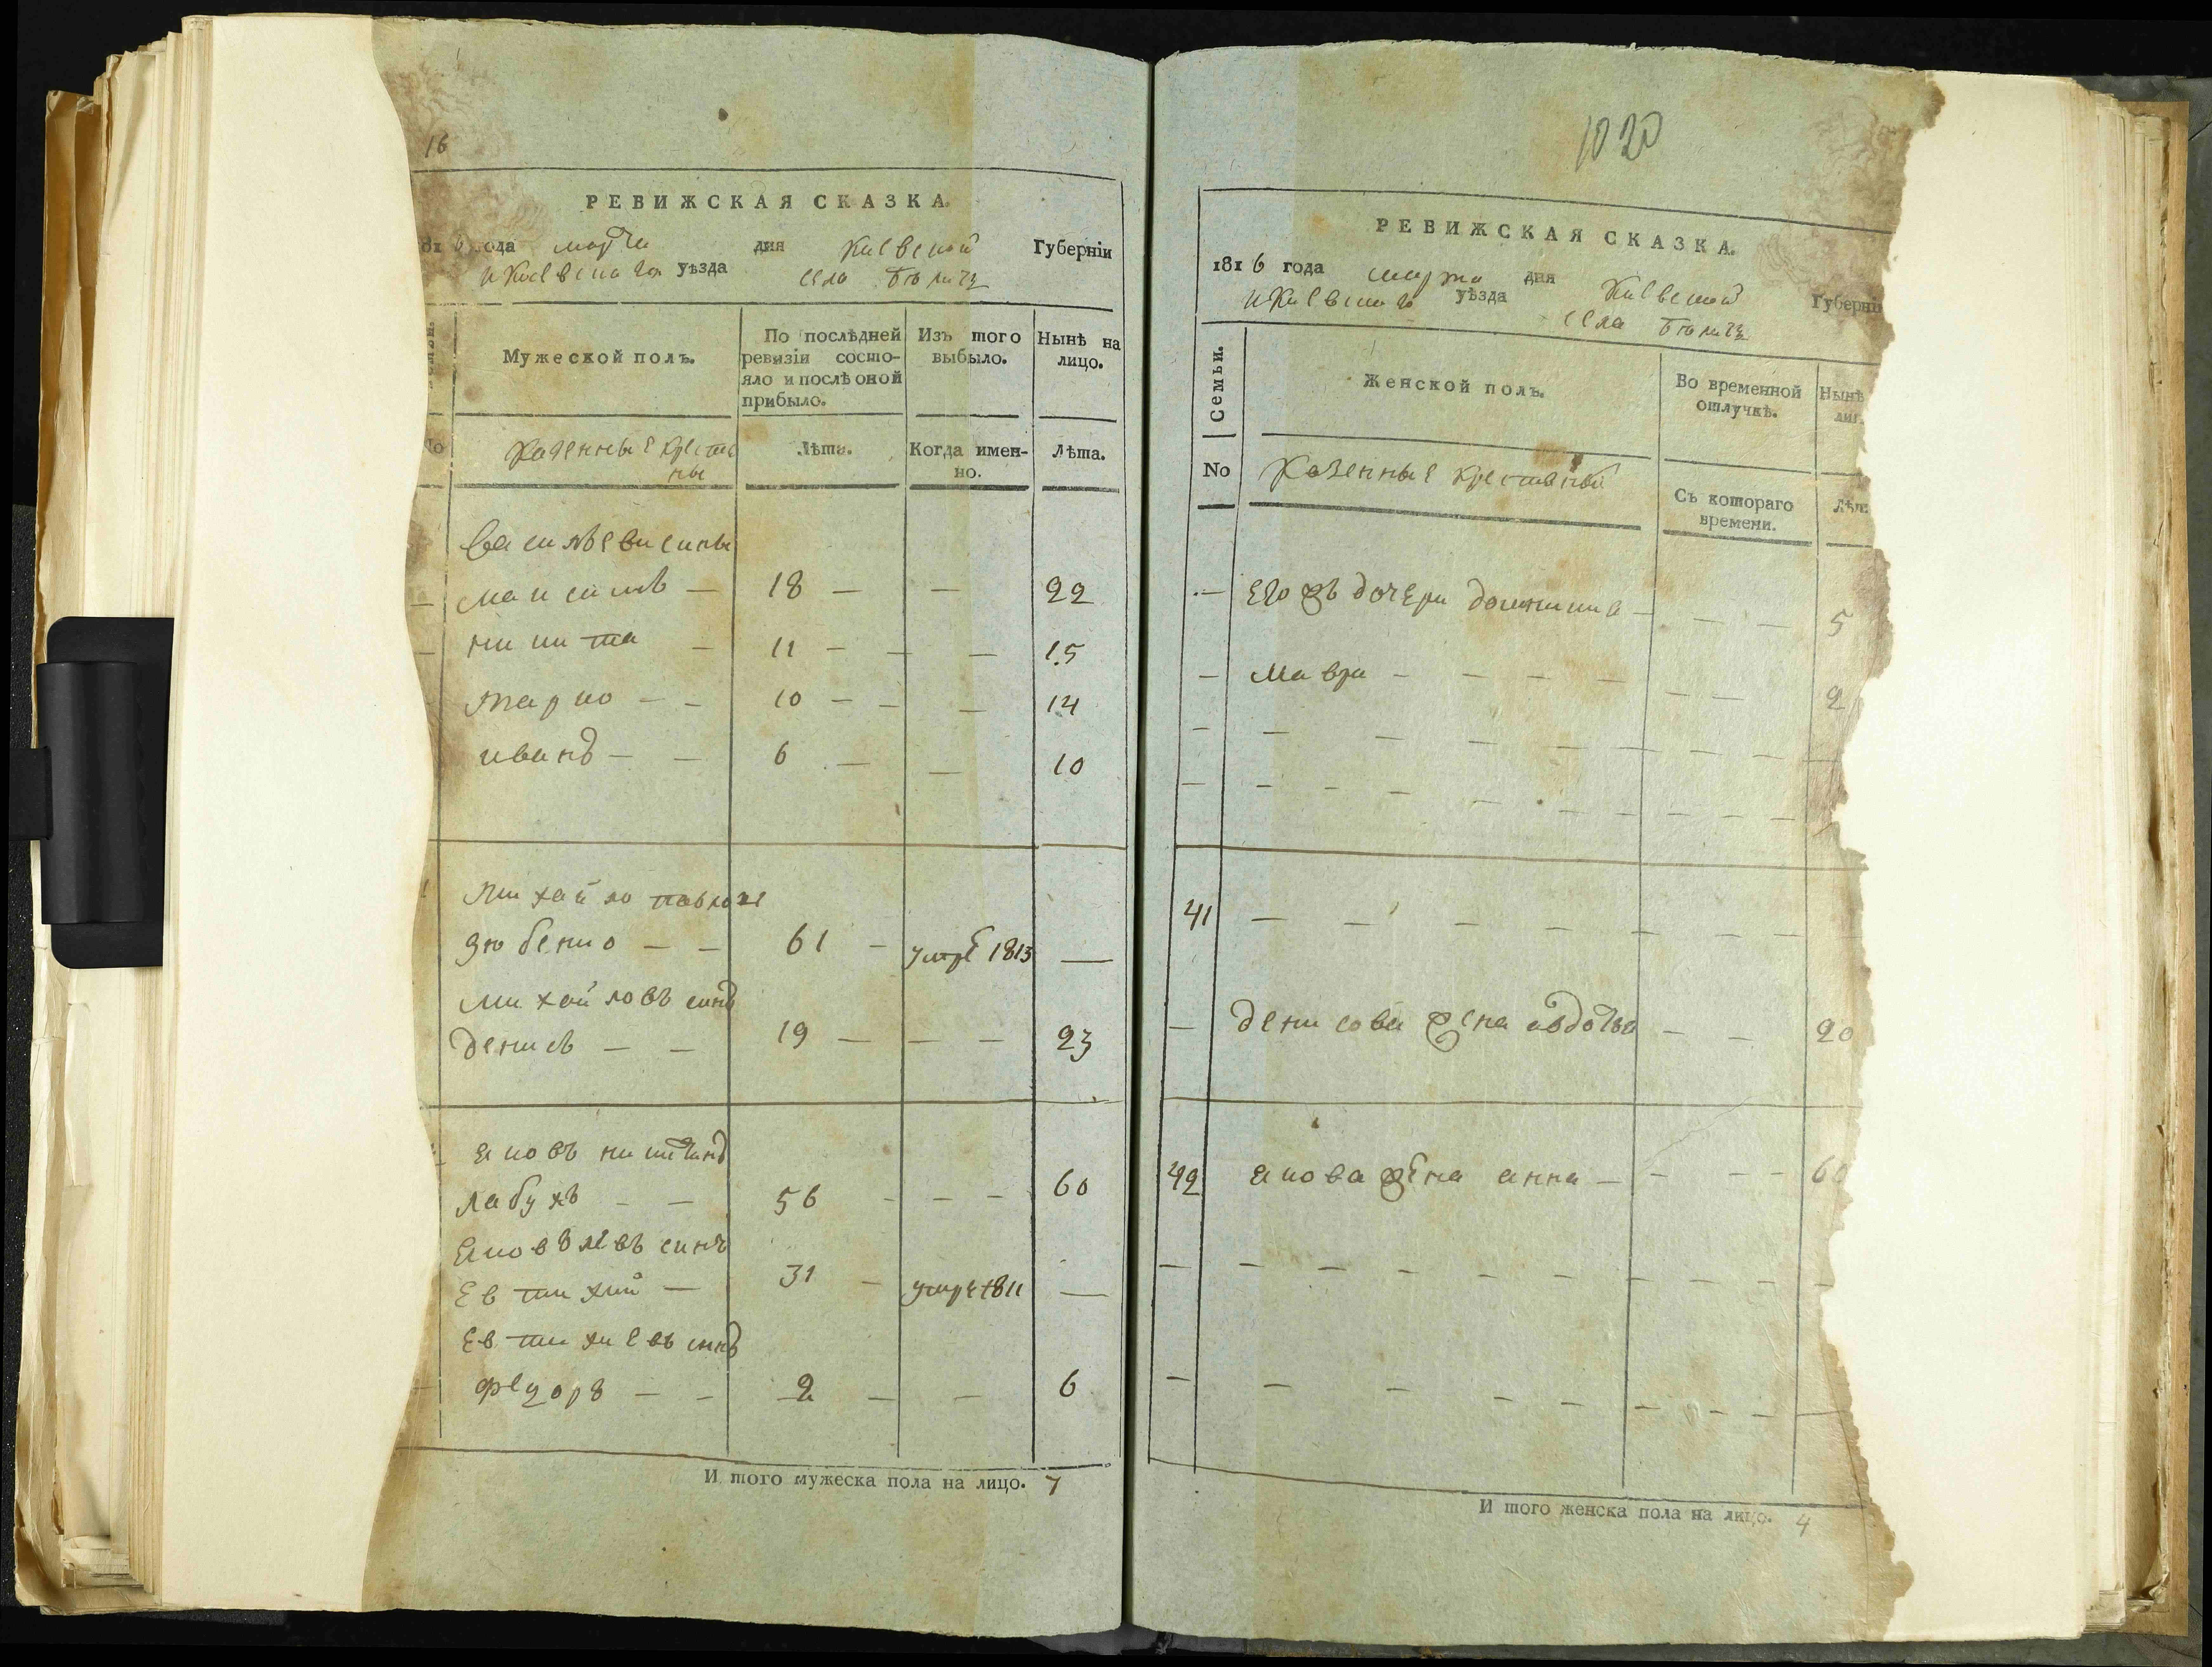 16
РЕВИЖСКАЯ СКАЗКА.
816 года марта дня Киевской Губерніи
и Киевскаго уѣзда села Бѣличъ
Мужеской полъ.
По послѣдней ревизіи состояло и послѣ оной прибыло.
Изъ того выбыло.
Нынѣ на лицо.
No
Казенные крестяны
Лѣта.
Когда именно.
Лѣта.
Василъеви сины
— максимъ — 18 — — 22
— никита — 11 — — — 15
марко — — 10 — — — 14
иванъ — — 6 — — 10
Михайло павлов
зюбенко — — 61 — умре 1813 —
михайловъ синъ
денисъ — — 19 — — — 23
яковъ никитинъ
лабухъ — — 56 — — — 60
яковлевъ синъ
Евтихий — 31 — умре 1811 —
Евтихиевъ синъ
федоръ — — 2 — — 6
И того мужеска пола на лицо. 7
1020
РЕВИЖСКАЯ СКАЗКА.
1816 года марта дня Киевской Губерні
и Киевскаго уѣзда села Бѣличъ
Семьи.
Женской полъ.
Во временной отлучкѣ.
Нынѣ
No
Казенные крестяны
Съ котораго времени.
Лѣт
— Его жъ дочери домникия — — — 5
— Мавра — — — — — — 2
41 — — — — — — — —
— денисова жена авдотя — — 20
42 якова жена анна — — — — 60
И того женска пола на лицо. 4